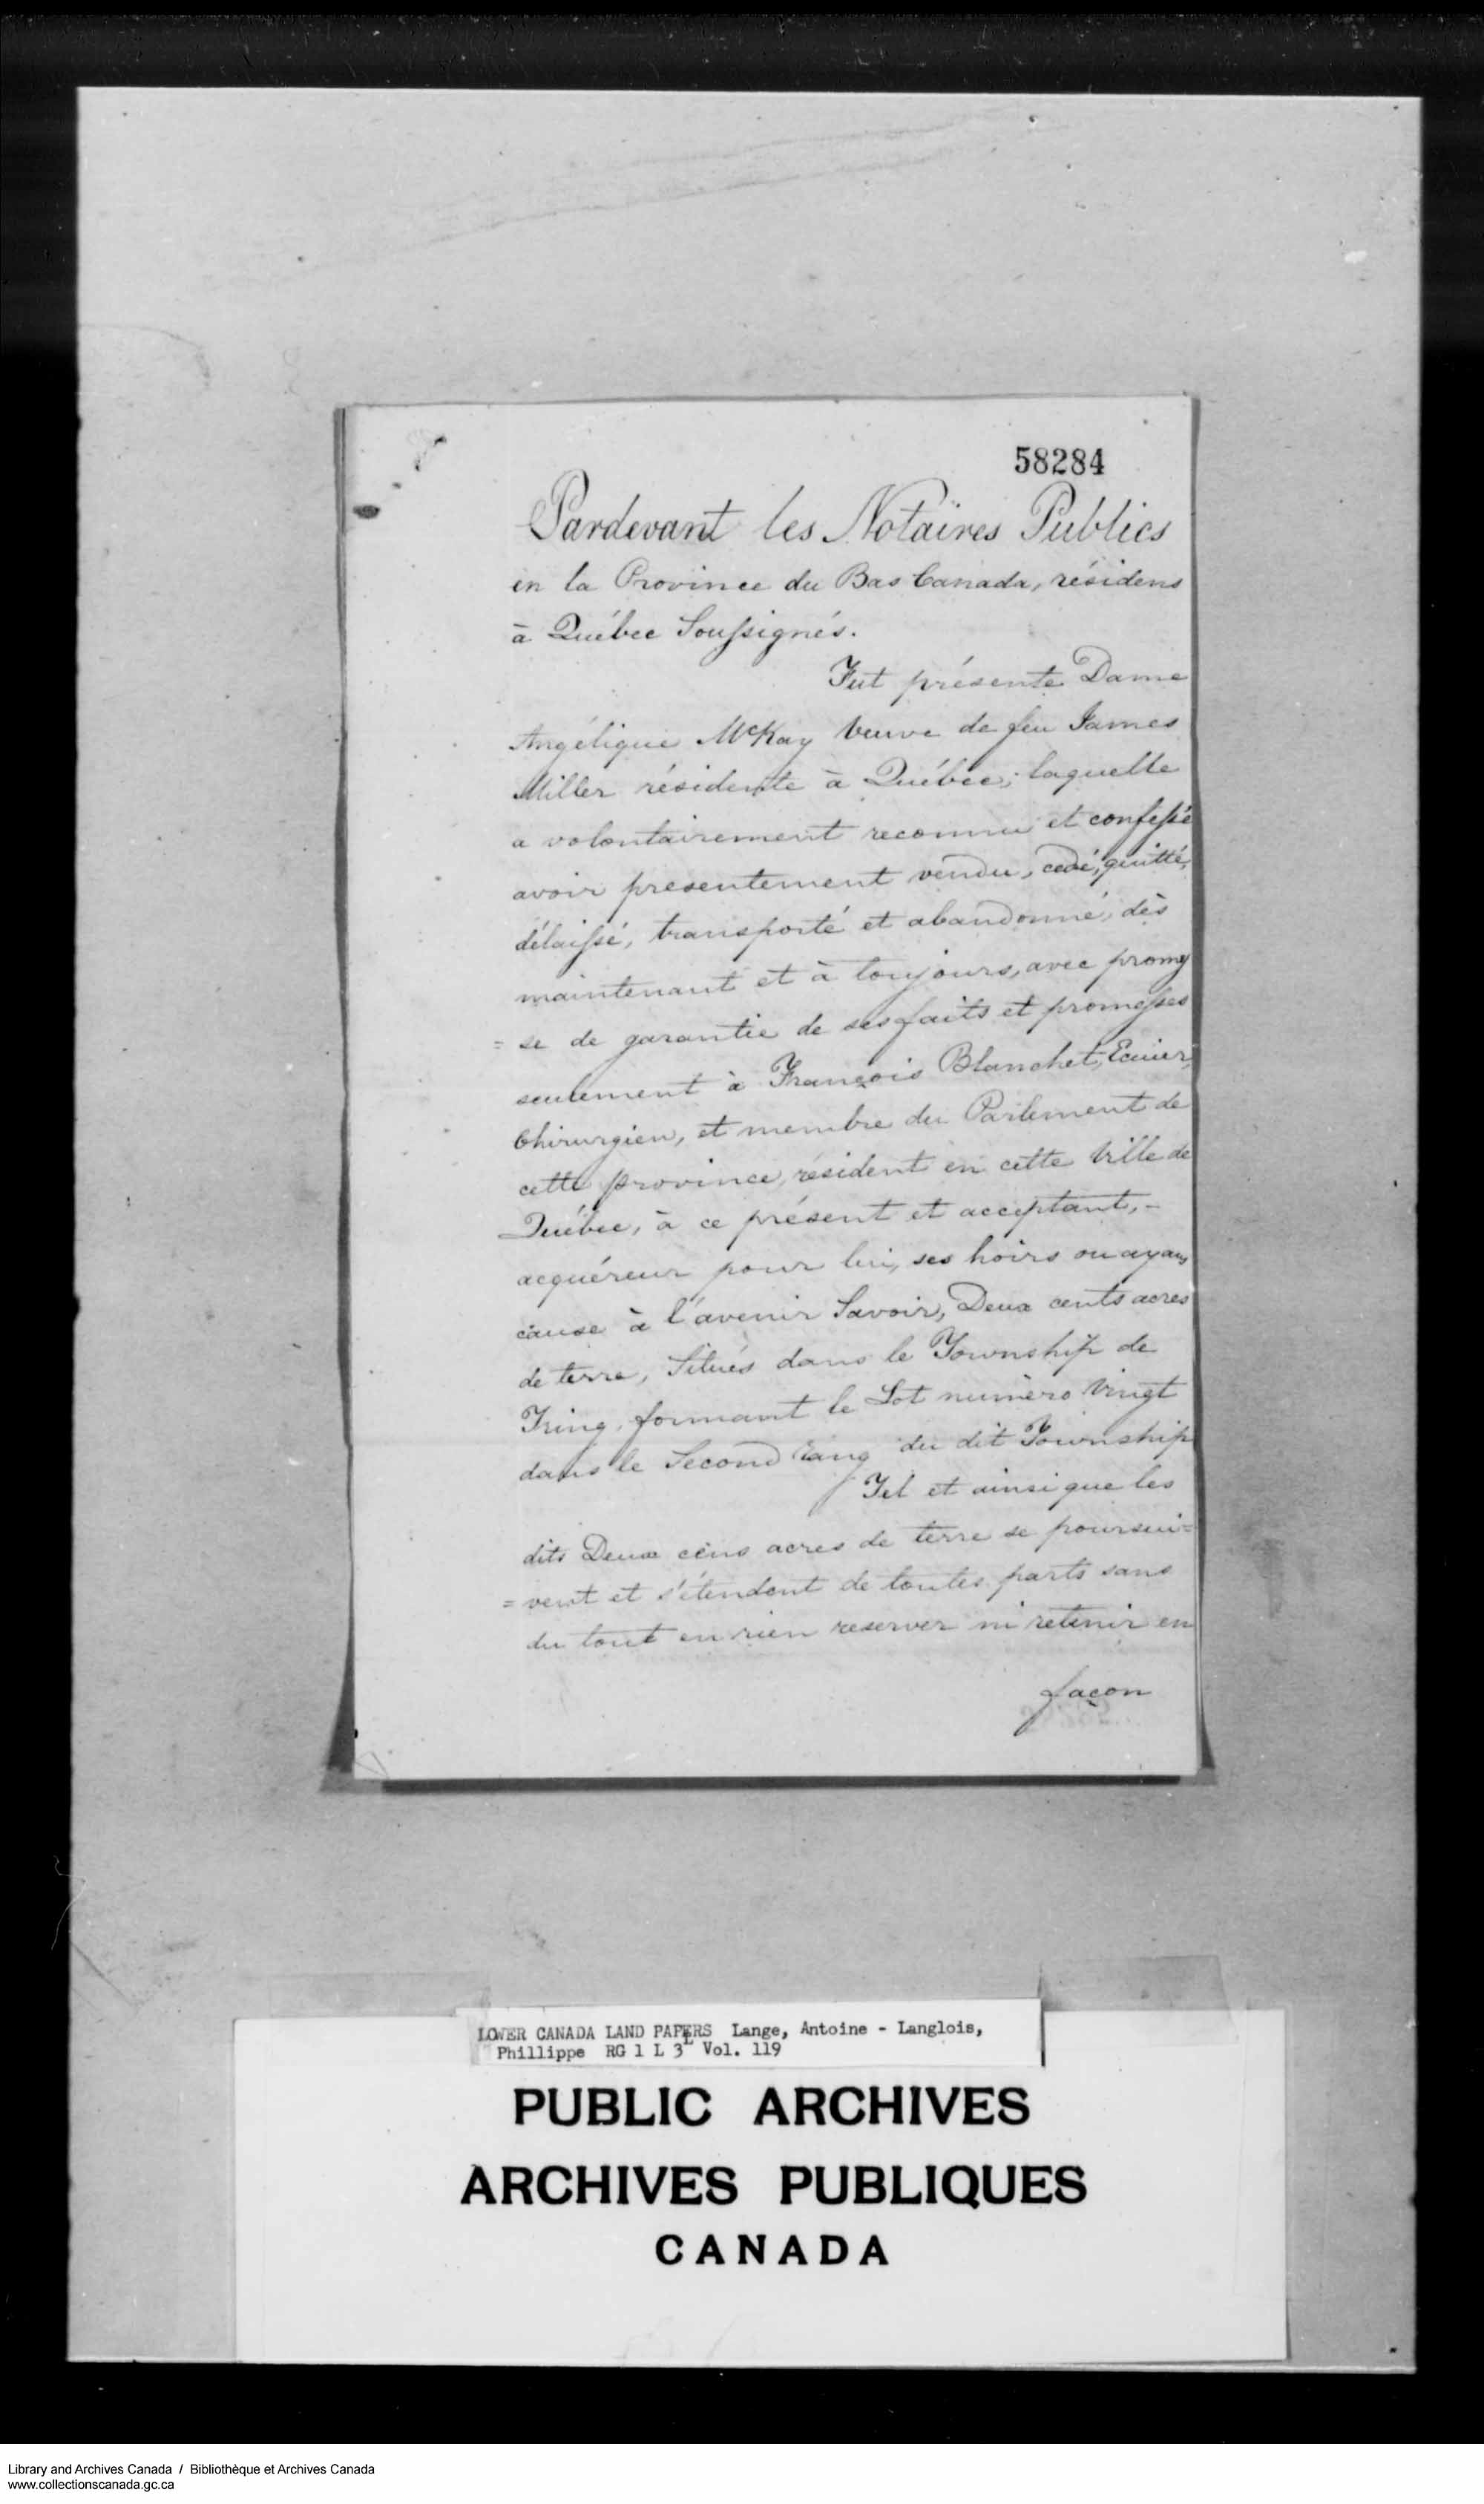 58284
Pardevant les Notaires Publics
en la Province du Bas Canada, résidens
à Québec Soussignés.
Fut présente Dame
Angélique McKay Veuve de feu James
Miller résidente à Québec; laquelle
a volontairement reconnu et confessé
avoir presentement vendu, cedé, quitté,
délaissé, transporté et abandonné, dès
maintenant et à toujours, avec promes
= se de garantie de ses faits et promesses
seulement à François Blanchet, Ecuier,
Chirurgien, et membre du Parlement de
cette province, résident en cette Ville de
Québec, à ce présent et acceptant, -
acquéreur pour lui, ses hoirs ou ayans
cause à l'avenir Savoir, Deux cents acres
de terre, Situés dans le Township de
Tring, formant le Lot numéro Vingt
dans le Second Rang du dit Township
Tel et ainsi que les
dits Deux cens acres de terre se poursui=
= vent et s'étendent de toutes parts sans
du tout en rien reserver ni retenir en
façon
LOWER CANADA LAND PAPERS Lange, Antoine - Langlois,
Phillippe RG 1 L 3L Vol. 119
PUBLIC ARCHIVES
ARCHIVES PUBLIQUES
CANADA
Library and Archives Canada / Bibliothèque et Archives Canada
www.collectionscanada.gc.ca